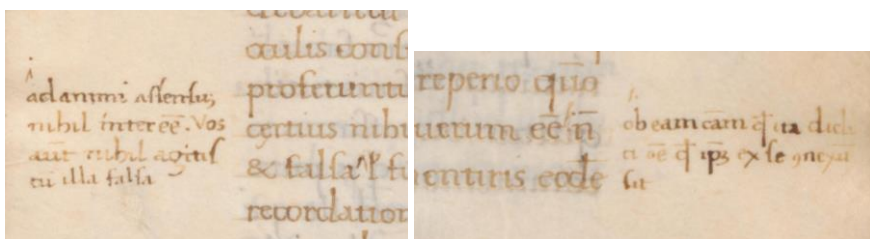 ad animi aſſenſuꝫ
nihil intereēē. Vos
aūt nihil agitiſ
cū illa falſa
oculis conſ
proferunt
certius nihi
& falſa ł fu
recordation
reperio quō
uerum eē n̄
entiris eodē
ob eam cām qđ ita
eē qđ ipꝫ ex ſe ꝯnexū
ſit